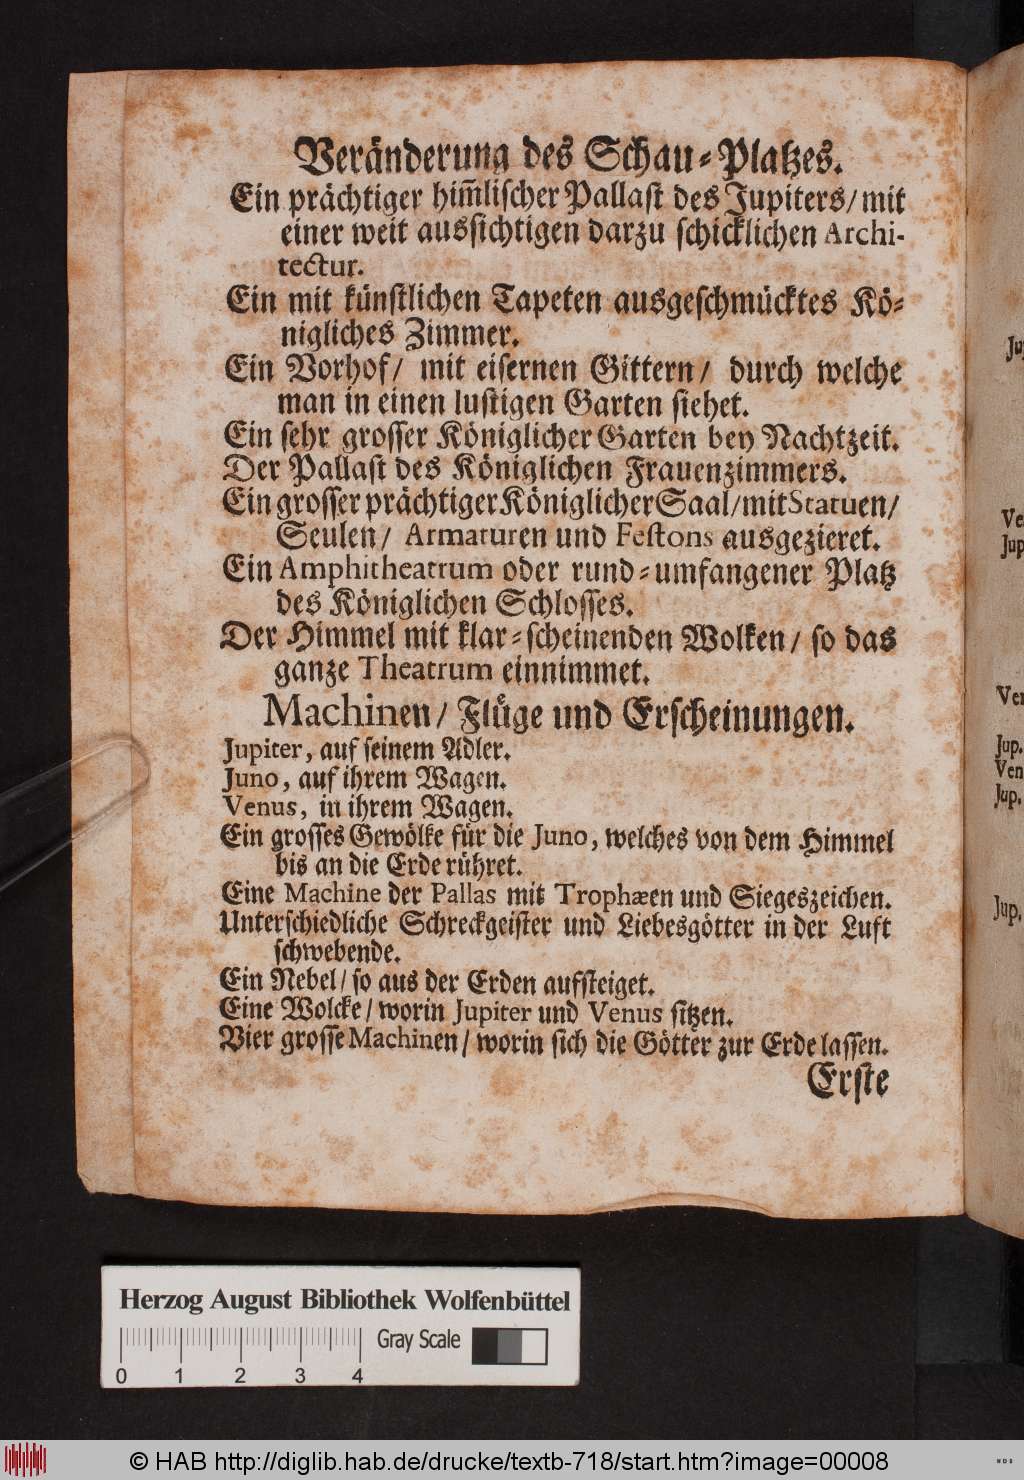 Veränderung des Schau-Platzes.
Ein prächtiger him̃lischer Pallast des Jupiters/ mit
einer weit aussichtigen darzu schicklichen Archi-
tectur.
Ein mit künstlichen Tapeten ausgeschmücktes Kö-
nigliches Zimmer.
Ein Vorhof/ mit eisernen Gittern/ durch welche
man in einen lustigen Garten siehet.
Ein sehr grosser Königlicher Garten bey Nachtzeit.
Der Pallast des Königlichen Frauenzimmers.
Ein grosser prächtiger Königlicher Saal/ mit Statuen/
Seulen/ Armaturen und Festons ausgezieret.
Ein Amphitheatrum oder rund-umfangener Platz
des Königlichen Schlosses.
Der Himmel mit klar-scheinenden Wolken/ so das
ganze Theatrum einnimmet.
Machinen/ Flüge und Erscheinungen.
Jupiter, auf seinem Adler.
Juno, auf ihrem Wagen.
Venus, in ihrem Wagen.
Ein grosses Gewölke für die Juno, welches von dem Himmel
bis an die Erde rühret.
Eine Machine der Pallas mit Trophæen und Siegeszeichen.
Unterschiedliche Schreckgeister und Liebesgötter in der Luft
schwebende.
Ein Nebel/ so aus der Erden aufsteiget.
Eine Wolcke/ worin Jupiter und Venus sitzen.
Vier grosse Machinen/ worin sich die Götter zur Erde lassen.
Erste
Ju
Ve
Jup
Ven
Jup.
Ven
Jup.
Jup.
Herzog August Bibliothek Wolfenbüttel
Gray Scale
0 1 2 3 4
© HAB http://diglib.hab.de/drucke/textb-718/start.htm?image=00008